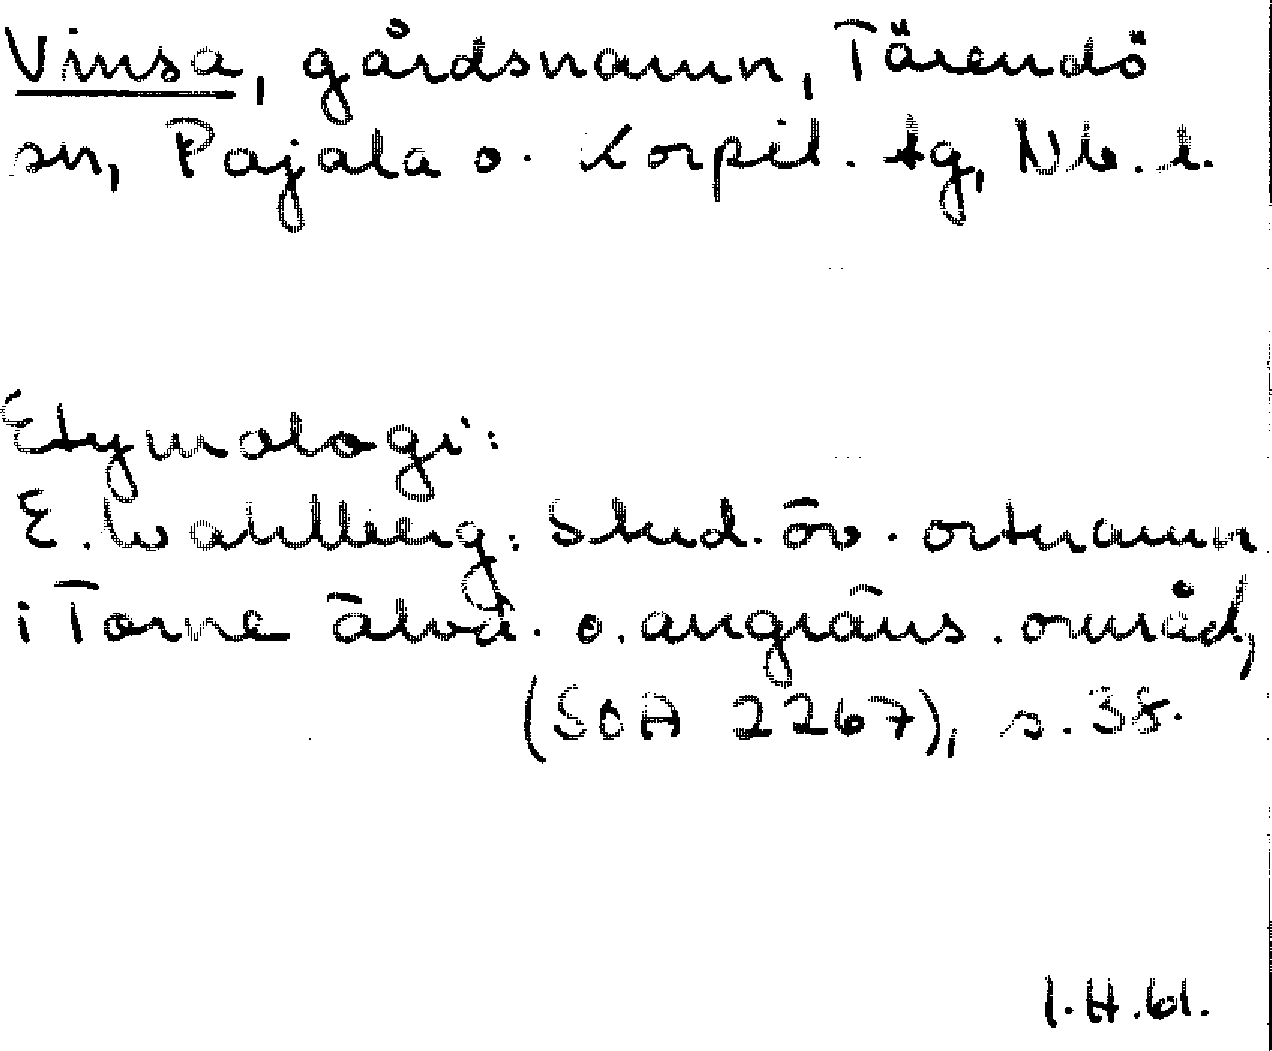 Vinsa, gårdsnamn, Tärendö
sn, Pajala o. Korpil. tg, Nb. l.
Etymologi:
E. Wahlberg: Stud. öv. ortnamn
i Torne älvd. o. angräns. områd,
(SOA 2267), s. 38.
I.H.61.